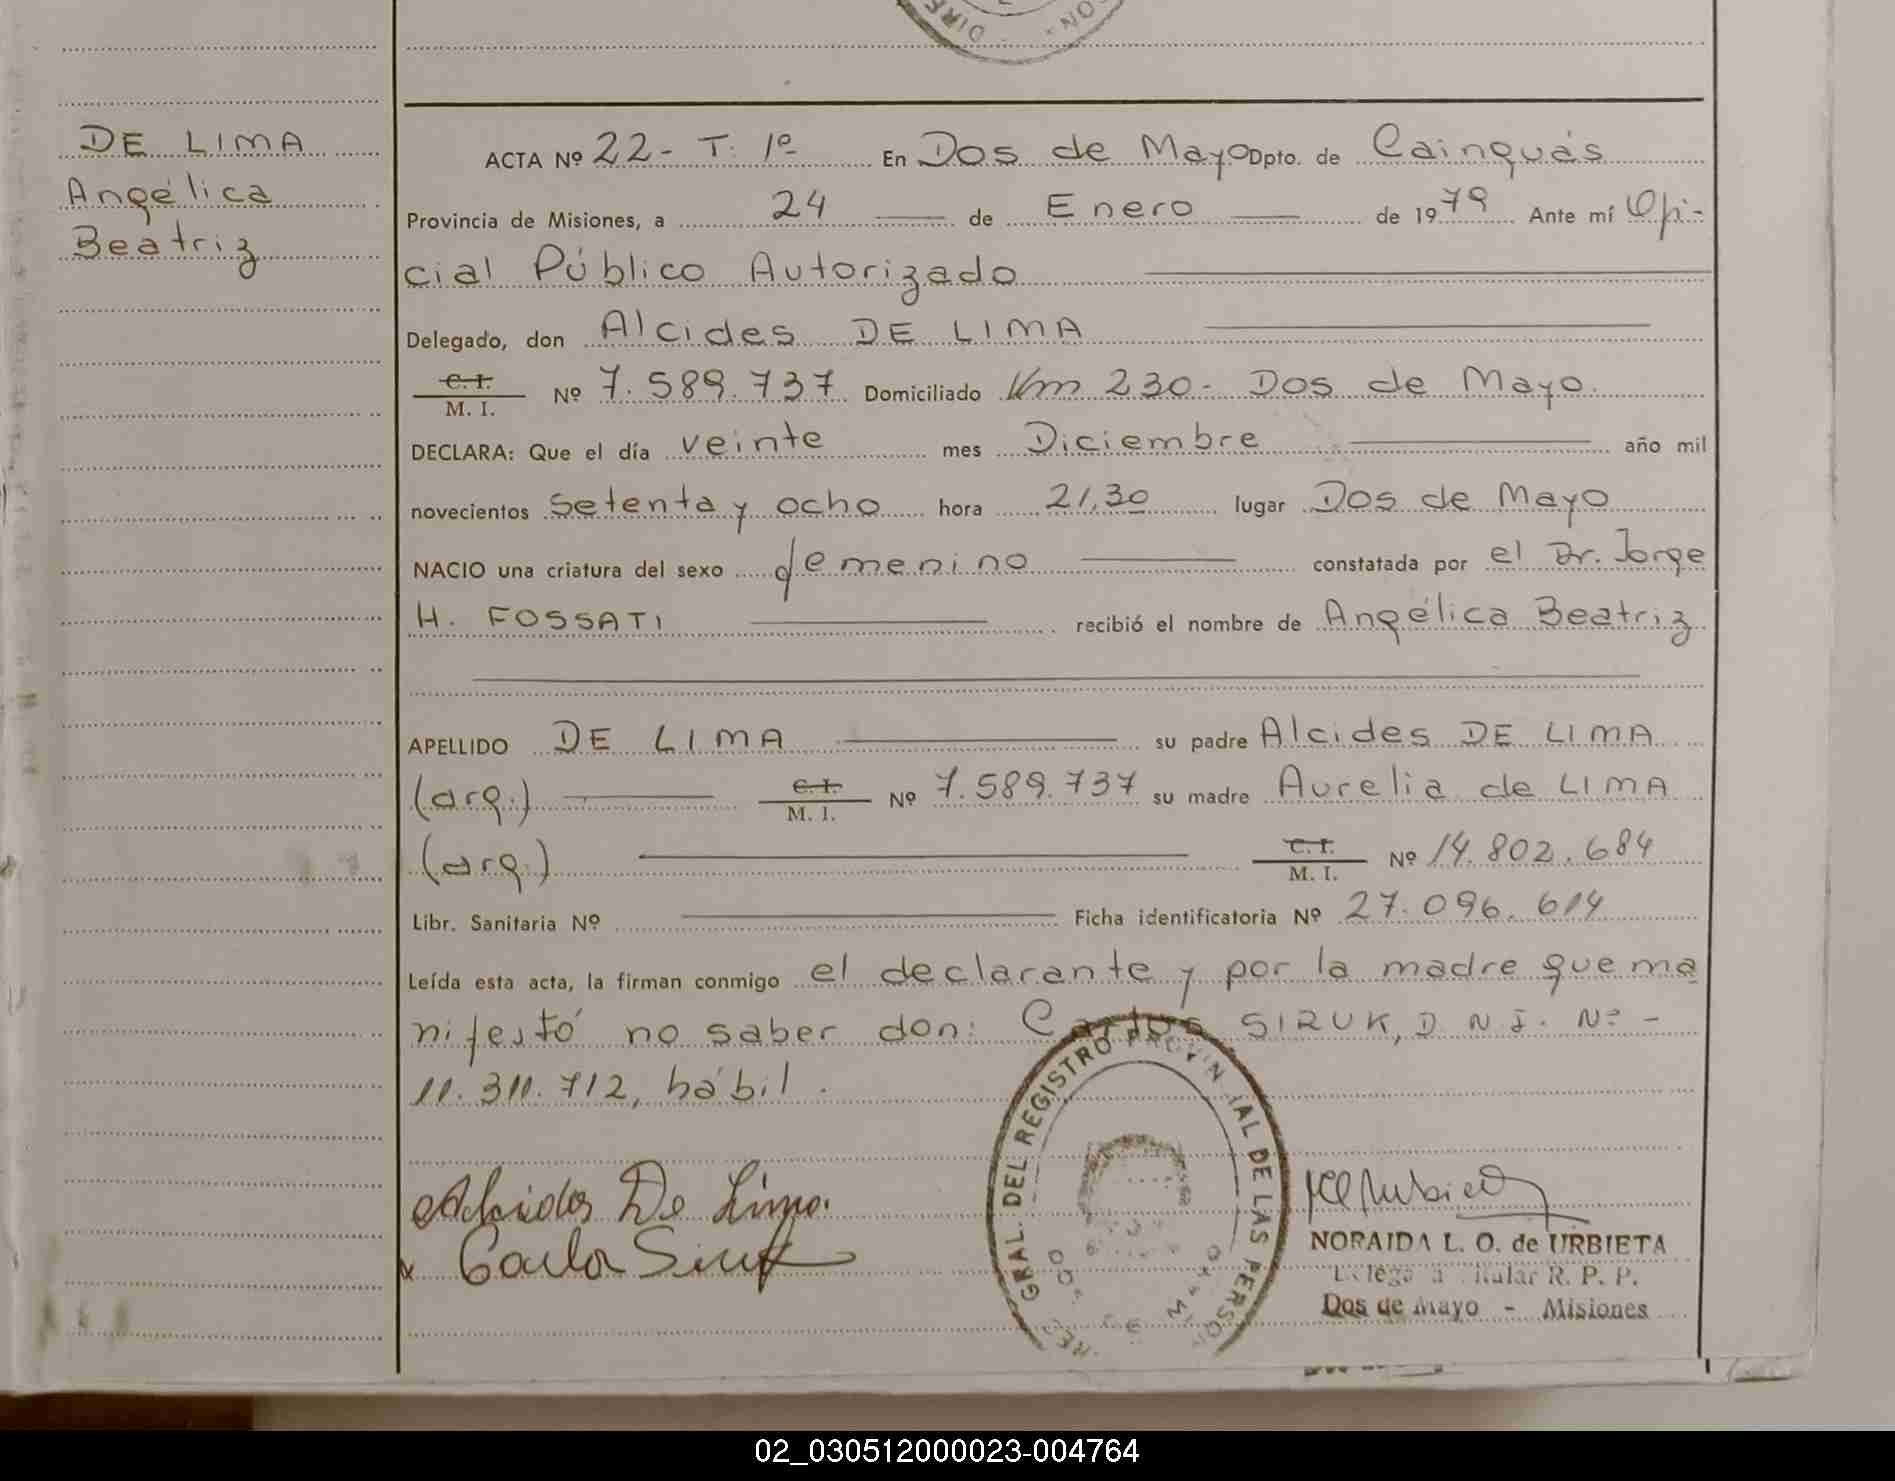 DE LIMA
Angélica
Beatriz
ACTA Nº 22- T: 1º En Dos de Mayo Dpto. de Cainguás
Provincia de Misiones, a 24 de Enero de 1979 Ante mí Ofi-
cial Público Autorizado
Delegado, don Alcides DE LIMA
C. I.
M. I. Nº 7.589.737 Domiciliado Km 230- Dos de Mayo.
DECLARA: Que el día veinte mes Diciembre año mil
novecientos setenta y ocho hora 21,30 lugar Dos de Mayo
NACIO una criatura del sexo femenino constatada por el Dr. Jorge
H. FOSSATI recibió el nombre de Angélica Beatriz
APELLIDO DE LIMA su padre Alcides DE LIMA
(arg.) C. I. M. I. Nº 7.589.737 su madre Aurelia de LIMA
(arg.) C. I. M. I. Nº 14.802.684
Libr. Sanitaria Nº Ficha identificatoria Nº 27.096.614
Leída esta acta, la firman conmigo el declarante y por la madre que ma
nifestó no saber don: Carlos SIRUK, D.N.I. Nº -
11.311.712, hábil.
Alcides De Lima.
x Carlos Siruk
GRAL. DEL REGISTRO PROVINCIAL DE LAS PERSON
NORAIDA L. O. de URBIETA
R. P. P.
Dos de Mayo - Misiones
02_030512000023-004764